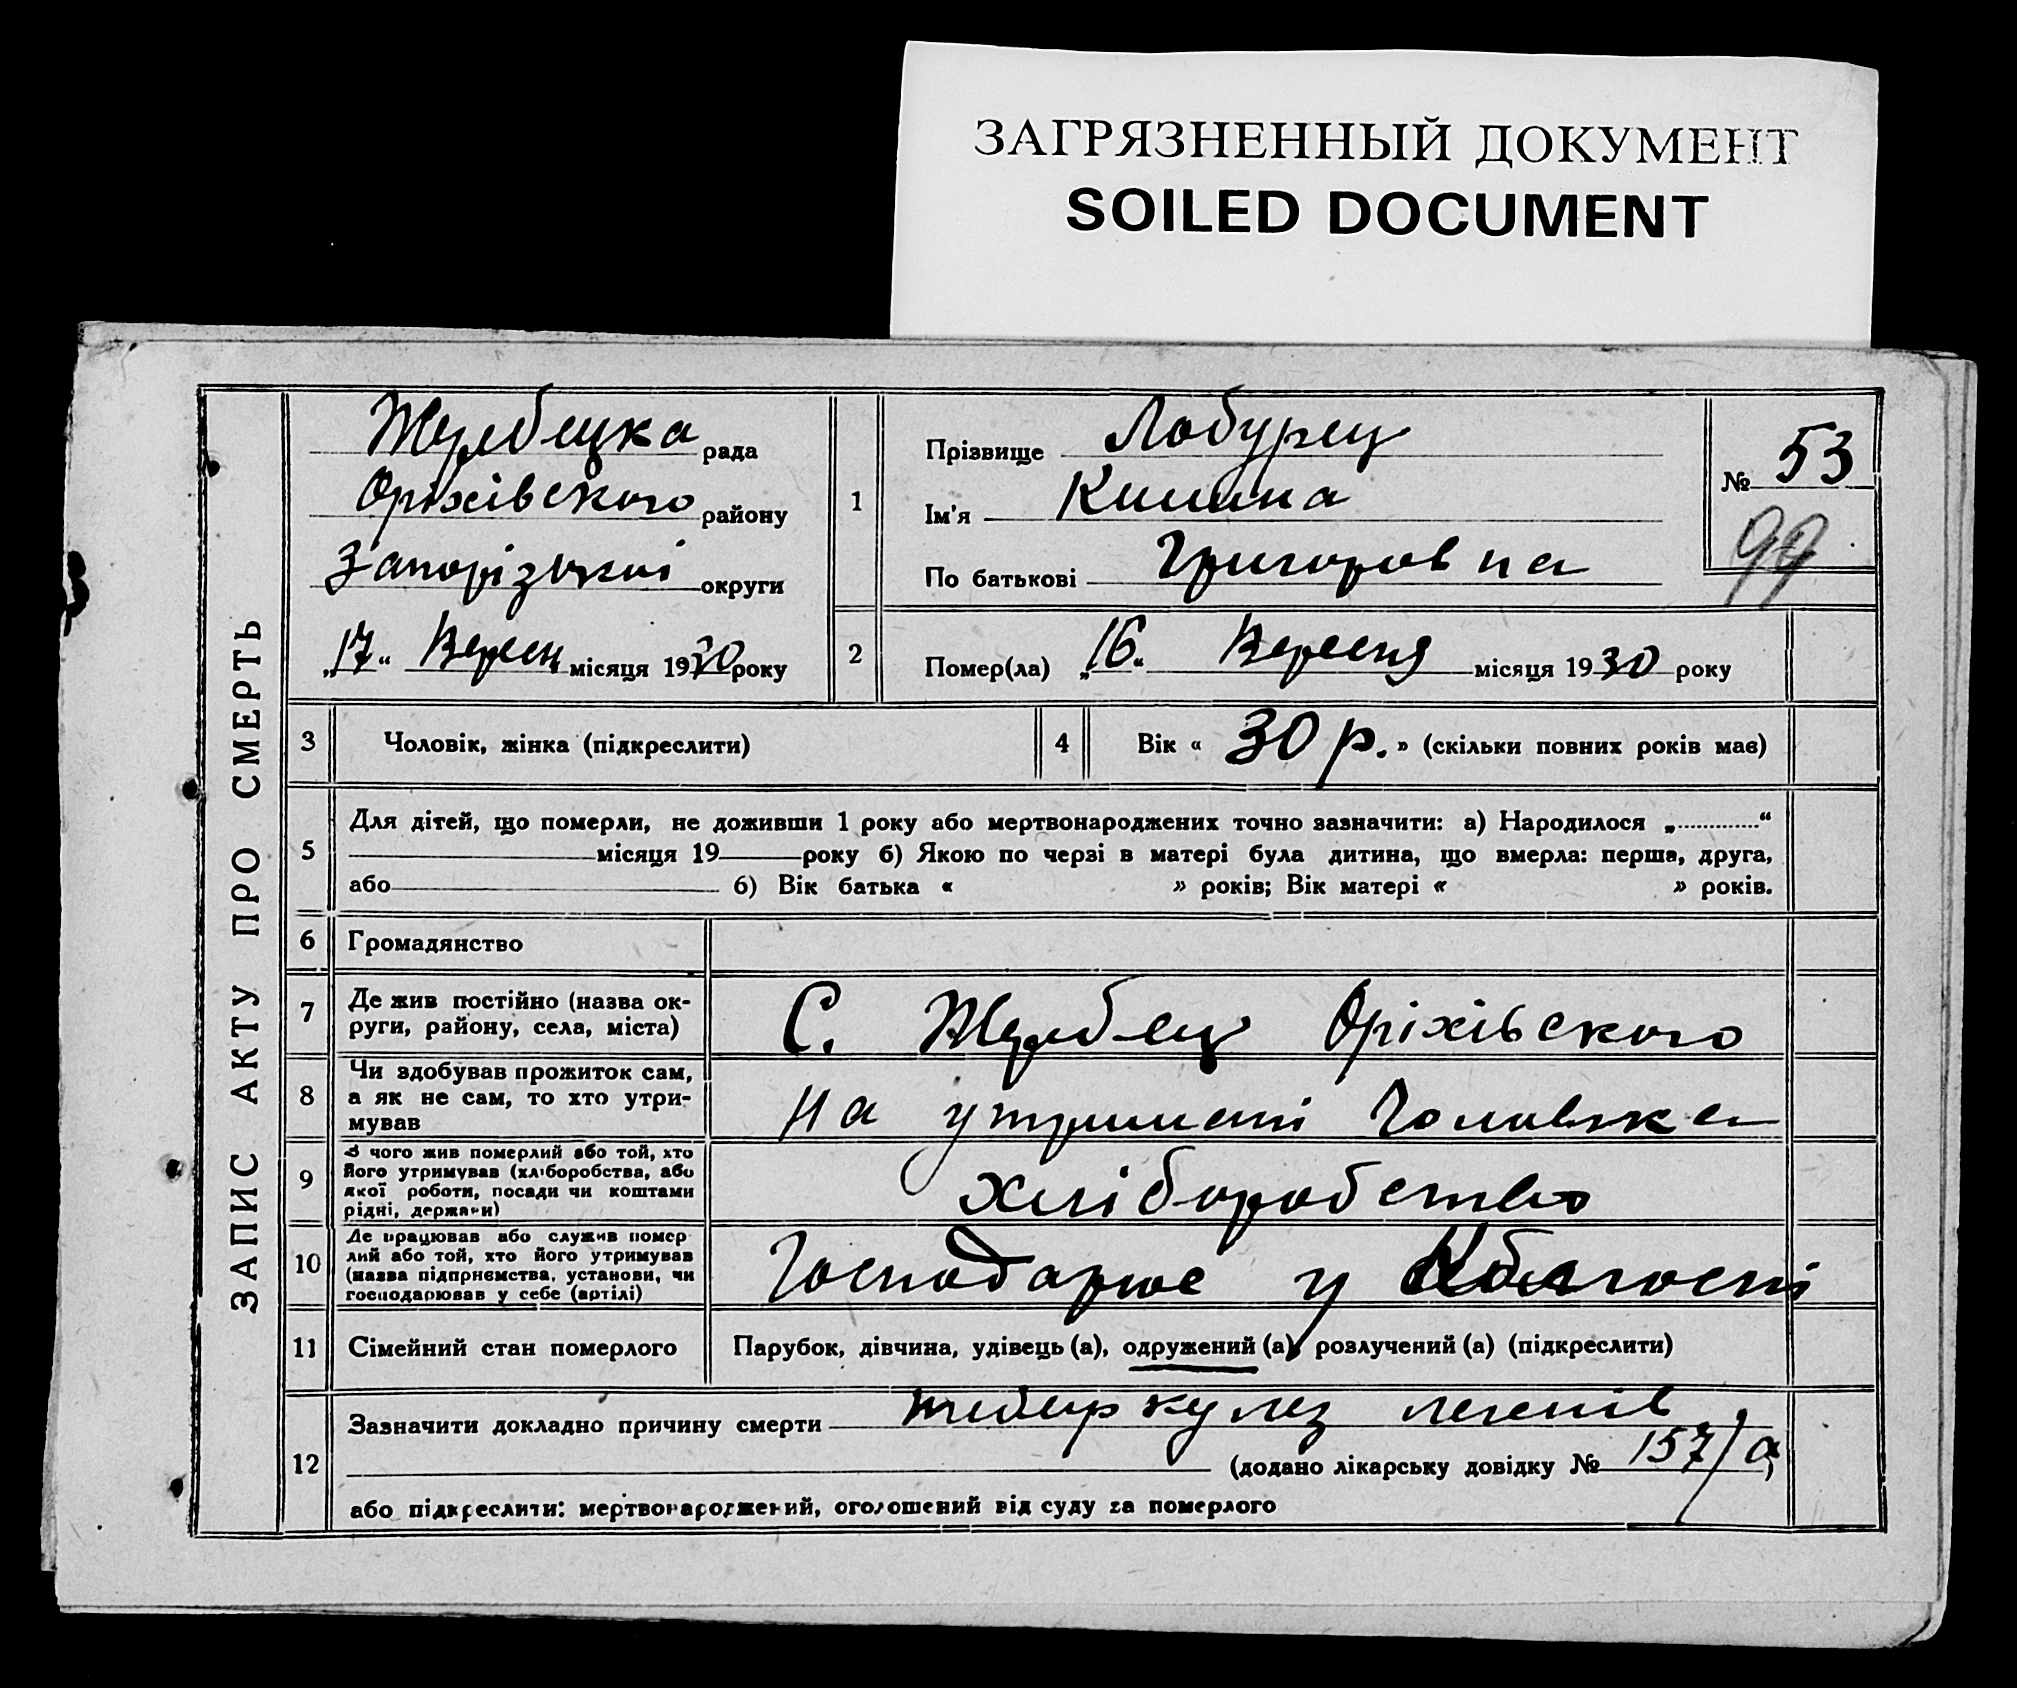 ЗАГРЯЗНЕННЫЙ ДОКУМЕНТ
SOILED DOCUMENT
ЗАПИС АКТУ ПРО СМЕРТЬ
Жеребецка рада
Оріхівського району
Запорізької округи
„17“ Вересн місяця 1930 року
1
Прізвище Лобурец
Ім'я Килина
По батькові Григоровна
№ 53
99
2
Помер(ла) „16“ Вересня місяця 1930 року
3 Чоловік, жінка (підкреслити)
4 Вік « 30 р. » (скільки повних років має)
5
Для дітей, що померли, не доживши 1 року або мертвонароджених точно зазначити: а) Народилося „ “
місяця 19 року б) Якою по черзі в матері була дитина, що вмерла: перша, друга,
або б) Вік батька « » років; Вік матері « » років.
6 Громадянство
7 Де жив постійно (назва ок-
руги, району, села, міста)
С. Жеребец Оріхівського
8 Чи здобував прожиток сам,
а як не сам, то хто утри-
мував
на утримані Чоловіка
9 З чого жив померлий або той, хто
його утримував (хліборобства, або
якої роботи, посади чи коштами
рідні, держави)
хліборобство
10 Де працював або служив помер
лий або той, хто його утримував
(назва підприємства, установи, чи
господарював у себе (артілі)
Господарює у
11 Сімейний стан померлого
Парубок, дівчина, удівець (а), одружений (а), розлучений (а) (підкреслити)
12
Зазначити докладно причину смерти туберкулез легенів
(додано лікарську довідку № 157/а)
або підкреслити: мертвонароджений, оголошений від суду за померлого